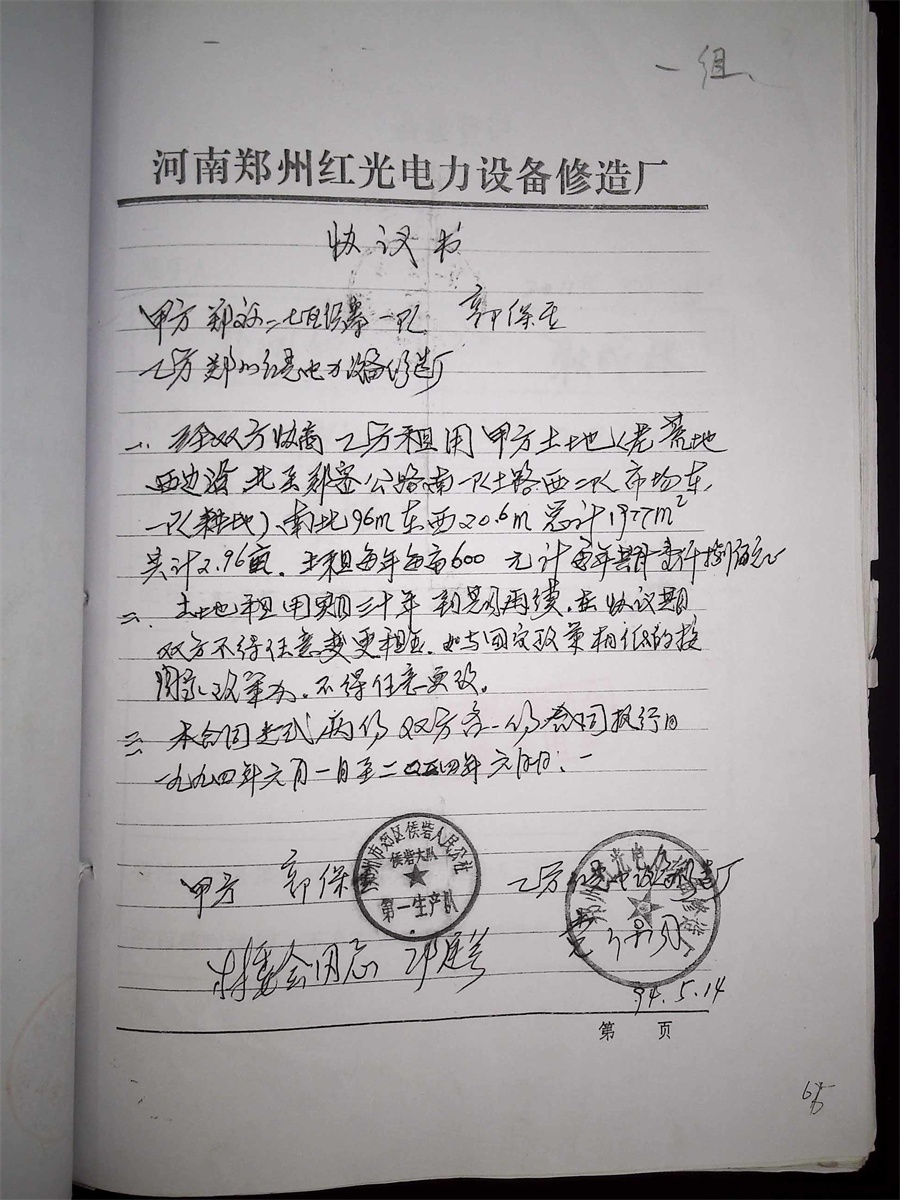 一组、
河南郑州红光电力设备修造厂
协议书
甲方 郑 二七区侯寨一队 郭保
乙方 郑州红光电力设备修造厂
一、经双方协商 乙方租用甲方土地(荒地
西边沿 北至郑密公路南一队土路西二队市场东,
一队(耕地)、南北96m东西20.6m总计1977m²
共计2.96亩. 土租每年每亩600元计
二、土地租用期三十年 到期再续.在协议期
双方不得任意变更租金.如与国家政策相低的按
国家政策办.不得任意更改。
三 本合同 式两份 双方各一份 合同执行日
一九九四年元月一日至二 四年元月
甲方 郭保
郑州市郊区侯砦人民公社
侯砦大队
第一生产队
乙方 红光电力设备修造厂
村委会同意
94.5.14
第 页